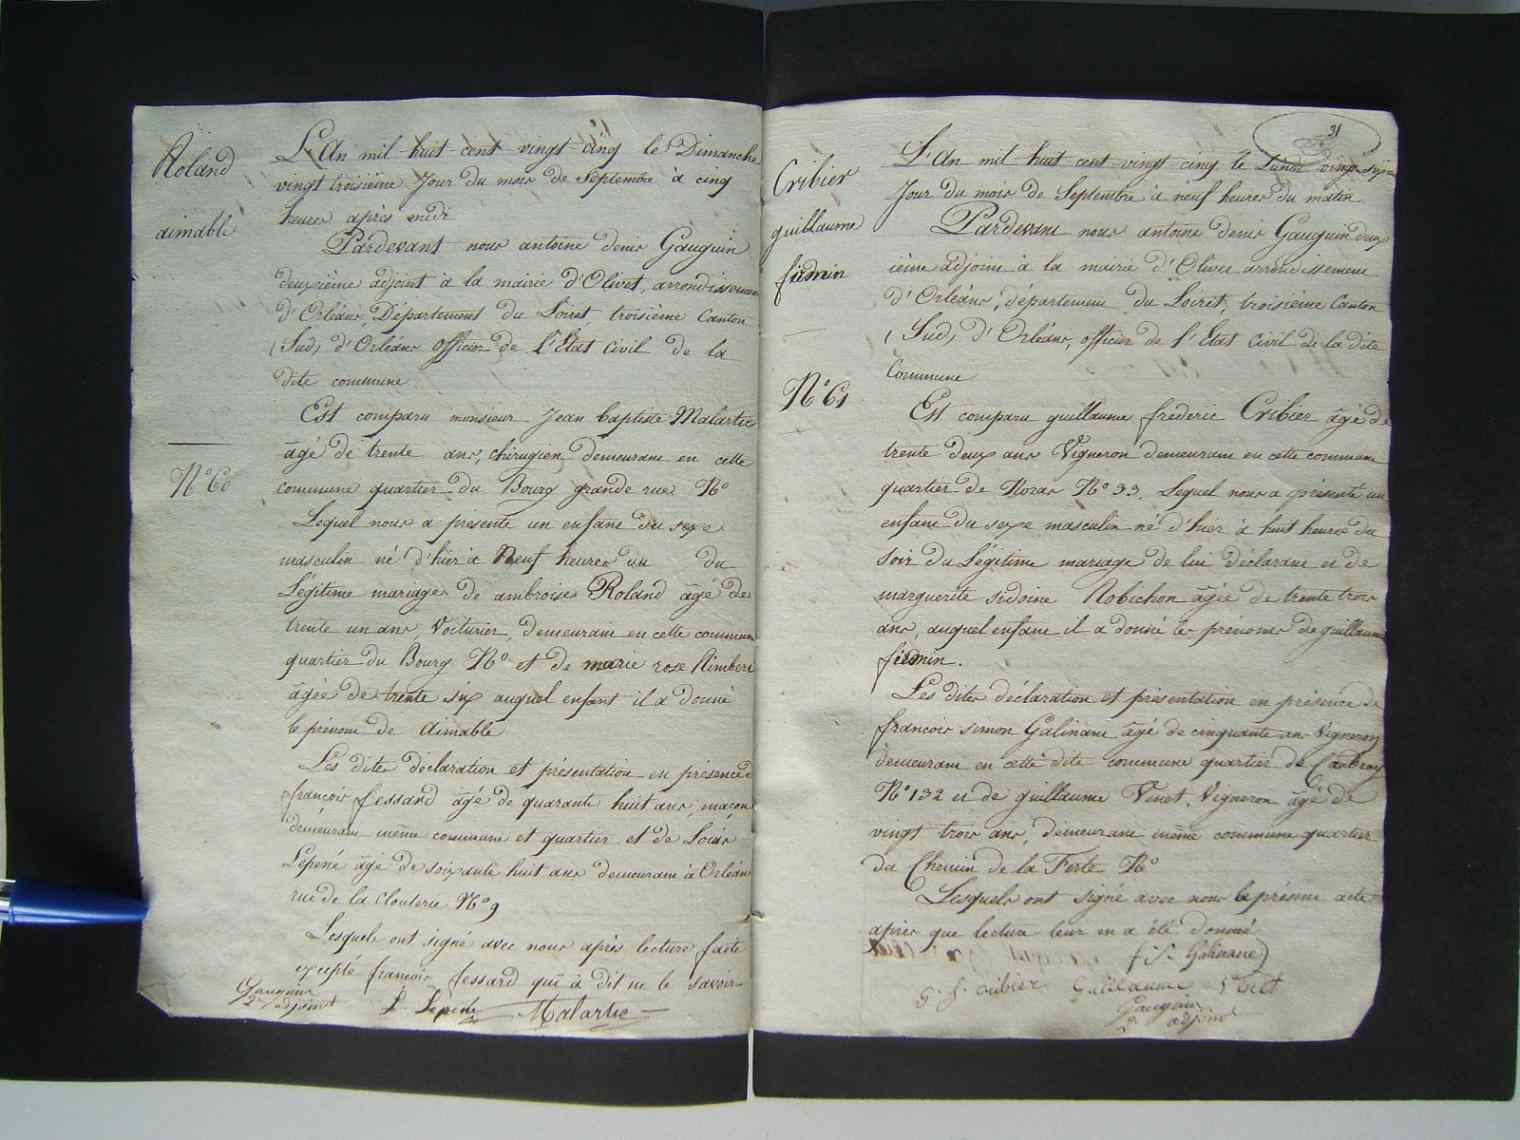 Roland
aimable
N.o 60
L'An mil huit cent vingt cinq le Dimanche
vingt troisième Jour du mois de Septembre à cinq
heures après midi
Pardevant nous antoine denis Gauguin
deuxième adjoint à la mairie d'Olivet, arrondissement
d'Orléans, Département du Loiret, troisième Canton
(Sud) d'Orléans officier de l'Etat Civil de la
dite commune
Est comparu monsieur Jean baptiste Malartic
âgé de trente ans, chirugien demeurant en cette
commune quartier du Bourg grande rue N.o
Lequel nous a présenté un enfant du sexe
masculin né d'hier à Neuf heures du du
Légitime mariage de ambroise Roland âgé de
trente un ans, Voiturier, demeurant en cette commune
quartier du Bourg N.o et de marie rose Rimbert
âgée de trente six auquel enfant il a donné
le prénom de Aimable
Les dites déclaration et présentation en présence de
françois fessard âgé de quarante huit ans, maçon
demeurant même commune et quartier et de Louis
Lepené âgé de soixante huit ans demeurant à Orléans
rue de la Clouterie N.o 9
Lesquels ont signé avec nous après lecture faite
excepté françois fessard qui à dit ne le savoir
Gauguin
2e adjoint L Lepené Malartic
31
Cribier
guillaume
firmin
N.o 61
L'An mil huit cent vingt cinq le Lundi
Jour du mois de Septembre à neuf heures du matin
Pardevant nous antoine denis Gauguin deux
ième adjoint à la mairie d'Olivet arrondissement
d'Orléans, département du Loiret, troisième Canton
(Sud) d'Orléans, officier de l'Etat Civil de la dite
Commune
Est comparu guillaume fréderic Cribier âgé de
trente deux ans Vigneron demeurant en cette commune
quartier de Noras N.o 33. Lequel nous a présenté un
enfant du sexe masculin né d'hier à huit heures du
soir du Légitime mariage de lui déclarant et de
marguerite sidoine Robichon âgée de trente trois
ans, auquel enfant il a donné les prénoms de guillaume
firmin.
Les dites déclaration et présentation en présence de
françois simon Galinant âgé de cinquante ans Vigneron
demeurant en cette dite commune quartier de Caubray
N.o 132 et de guillaume Venet, Vigneron âgé de
vingt trois ans, demeurant même commune quartier
du Chemin de la Ferté N.o
Lesquels ont signé avec nous le présent acte
après que lecture leur en a été donné
f. S. Galinant
G. f. cribier Guillaume Venet
Gauguin
2e adjoint